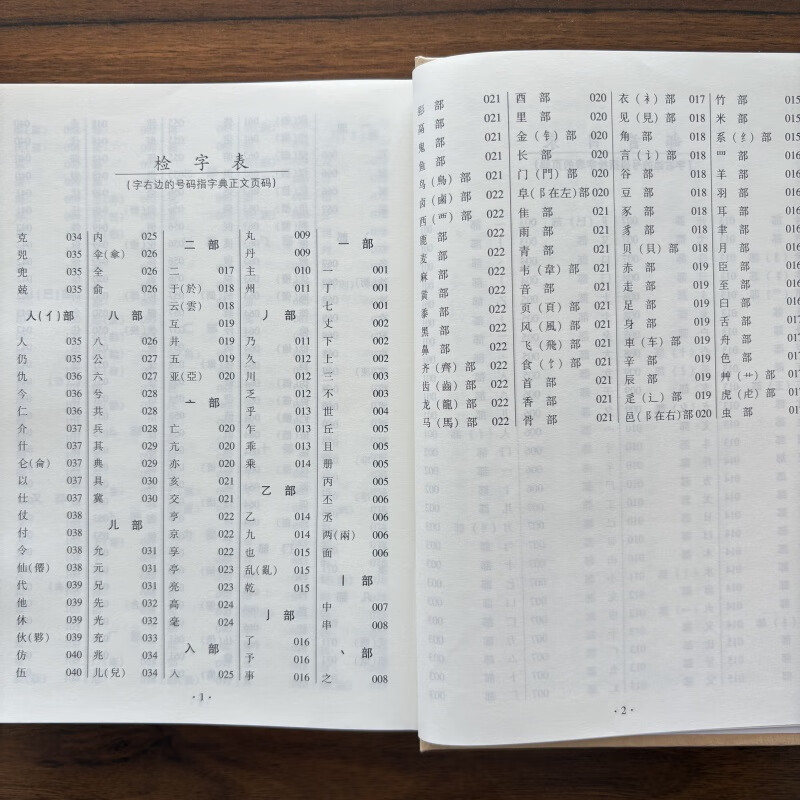 检字表
(字右边的号码指字典正文页码)
一 部
一 001
丁 001
七 001
丈 002
下 002
上 002
三 003
不 003
世 004
丘 005
且 005
册 005
丙 005
丕 006
丞 006
两(兩) 006
面 006
丨 部
中 007
串 008
丶 部
之 008
丸 009
丹 009
主 010
州 011
丿 部
乃 011
久 012
川 012
乏 012
乎 013
乍 013
乖 013
乘 014
乙 部
乙 014
九 014
也 015
乱(亂) 015
乾 015
亅 部
了 016
予 016
事 016
二 部
二 017
于(於) 018
云(雲) 018
互 019
井 019
五 019
亚(亞) 020
亠 部
亡 020
亢 020
亦 020
亥 021
交 021
亨 022
京 022
享 022
亭 023
亮 023
高 024
毫 024
入 部
入 025
内 025
伞(傘) 026
全 026
俞 026
八 部
八 026
公 027
六 027
兮 028
共 028
兵 028
其 029
典 029
具 030
冀 030
儿 部
允 031
元 031
兄 031
先 032
光 032
充 033
兆 034
儿(兒) 034
克 034
兕 035
兜 035
兢 035
人(亻)部
人 035
仍 035
仇 036
今 036
仁 036
介 037
什 037
仑(侖) 037
以 037
仕 037
仗 038
付 038
令 038
仙(僊) 038
代 039
他 039
休 039
伙(夥) 039
仿 040
伍 040
· 1 ·
竹 部
米 部
糸(纟)部
罒 部
羊 部
羽 部
耳 部
聿 部
月 部
臣 部
至 部
臼 部
舌 部
舟 部
色 部
艸(艹)部
虎(虍)部
虫 部
衣(衤)部 017
见(見)部 018
角 部 018
言(讠)部 018
谷 部 018
豆 部 018
豕 部 018
豸 部 018
贝(貝)部 018
赤 部 019
走 部 019
足 部 019
身 部 019
車(车)部 019
辛 部 019
辰 部 019
辵(辶)部 019
邑(阝在右)部 020
酉 部 020
里 部 020
金(钅)部 020
长 部 020
门(門)部 020
阜(阝在左)部 020
隹 部 021
雨 部 021
青 部 021
韦(韋)部 021
音 部 021
页(頁)部 021
风(風)部 021
飞(飛)部 021
食(饣)部 021
首 部 021
香 部 021
骨 部 021
髟 部 021
鬲 部 021
鬼 部 021
鱼 部 021
鸟(鳥)部 021
卤(鹵)部 022
西(覀)部 022
鹿 部 022
麦 部 022
麻 部 022
黄 部 022
黍 部 022
黑 部 022
鼻 部 022
齐(齊)部 022
齿(齒)部 022
龙(龍)部 022
马(馬)部 022
· 2 ·